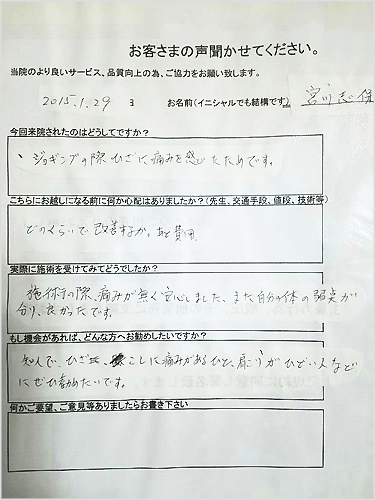 お客さまの声聞かせてください。
当院のより良いサービス、品質向上の為、ご協力をお願い致します。
2015.1.29 お名前(イニシャルでも結構です) 宮川志保
今回来院されたのはどうしてですか?
、ジョギングの際ひざに痛みを感じたためです。
こちらにお越しになる前に何か心配はありましたか?(先生、交通手段、値段、技術等)
どのくらいで改善するか。あと費用
実際に施術を受けてみてどうでしたか?
施術の際、痛みが無く安心しました、また自分の体の弱点が
分り、良かったです。
もし機会があれば、どんな方へお勧めしたいですか?
知人で、ひざ こしに痛みがあるひと、肩こりがひどい人など
にぜひ勧めたいです。
何かご要望、ご意見等ありましたらお書き下さい